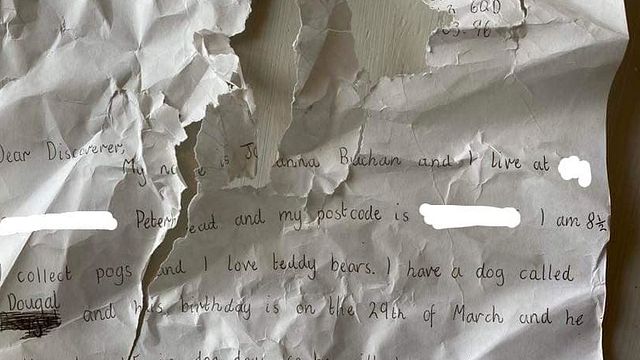 6QD
03.96
Dear Discoverer,
My na e is Jo anna Buchan and I live at
Peter ead and my postcode is I am 8½
collect pogs and I love teddy bears. I have a dog called
Dougal and his birthday is on the 29th of March and he